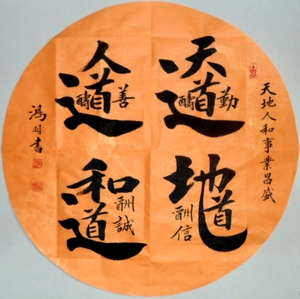 天地人和事業昌盛
天道酬勤
地道酬信
人道酬善
和道酬誠
鴻羽書